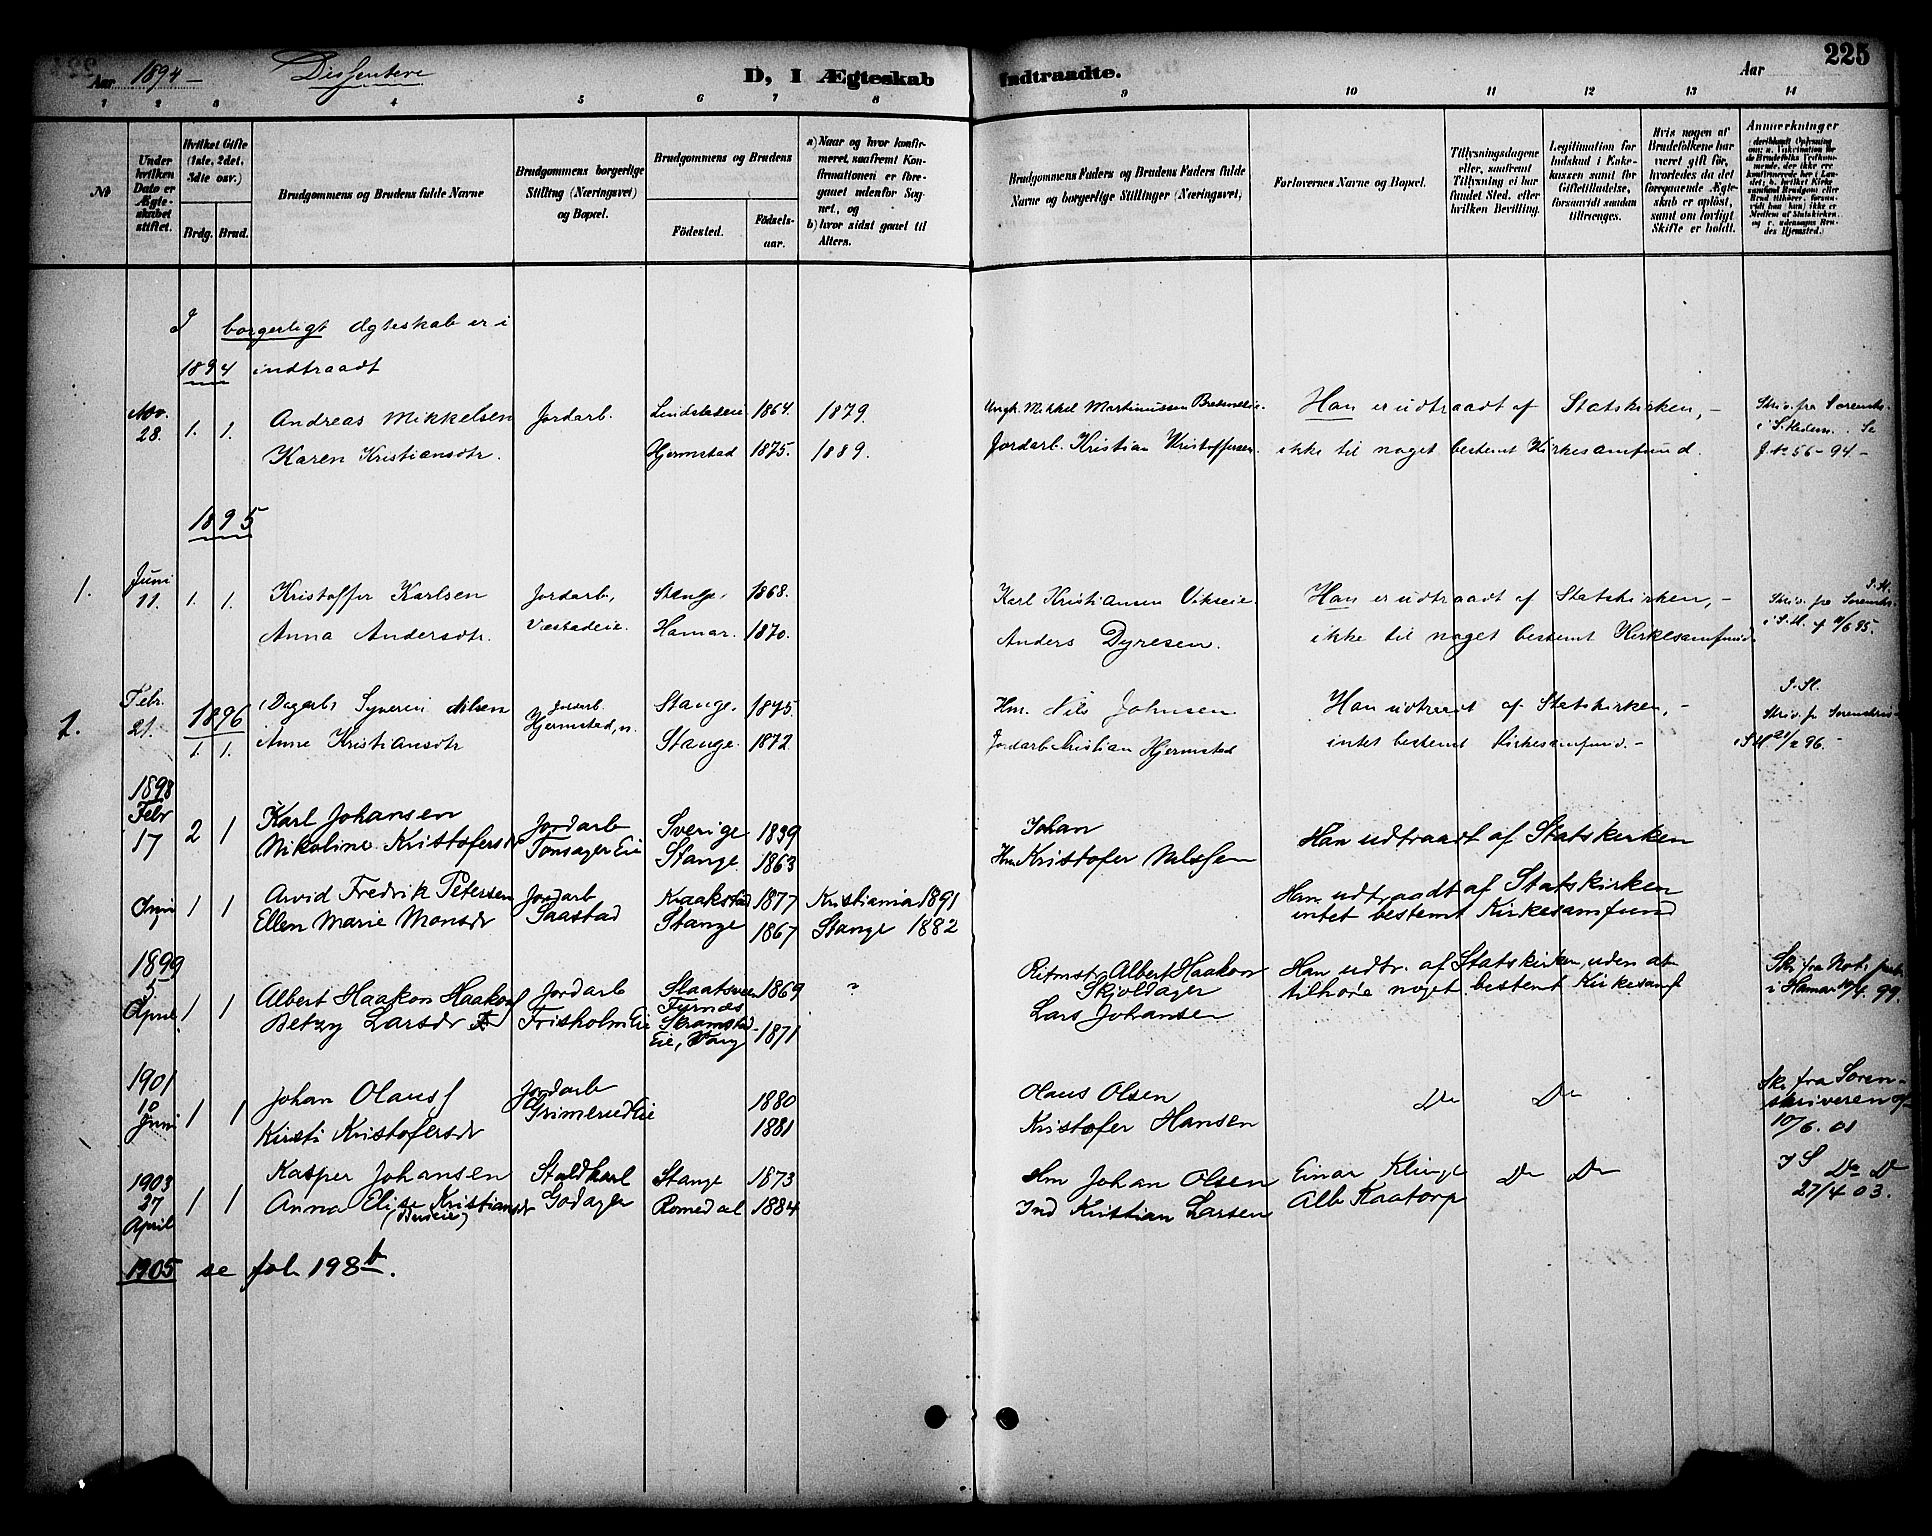 225
Aar 1894 — Dissentere D, I Ægteskab Indtraadte. Aar
1 2 3 4 5 6 7 8 9 10 11 12 13 14
No
Under hvilken Dato er Ægteskabet stiftet.
Hvilket Gifte (1ste, 2det, 3die osv.)
Brdg. Brud.
Brudgommens og Brudens fulde Navne
Brudgommens borgerlige Stilling (Næringsvei) og Bopæl.
Brudgommens og Brudens
Fødested. Fødselsaar.
a) Naar og hvor konfirmeret, saafremt Konfirmationen er foregaaet udenfor Sognet, og
b) hvor sidst gaaet til Alters.
Brudgommens Faders og Brudens Faders fulde Navne og borgerlige Stillinger (Næringsvei),
Forlovernes Navne og Bopæl.
Tillysningsdagene eller, saafremt Tillysning ei har fundet Sted, efter hvilken Bevilling.
Legitimation for Indskud i Enkekassen samt for Giftetilladelse, forsaavidt saadan tiltrænges.
Hvis nogen af Brudefolkene har været gift før, hvorledes da det foregaaende Ægteskab er opløst, samt om lovligt Skifte er holdt.
Anmærkninger
I borgerligt Ægteskab er i
1894 indtraadt
Nov. 28. 1. 1. Andreas Mikkelsen Jordarb. 1864. 1879. Ungk. Mikkel Martinussen Han er udtraadt af Statskirken, —
Karen Kristiansdtr. Hjermstad 1875. 1889. Jordarb. Kristian Kristoffersen ikke til noget bestemt Kirkesamfund. J. No 56 - 94. -
1895
1. Juni 11. 1. 1. Kristoffer Karlsen Jordarb, Stange. 1868. Karl Kristiansen Vikseie Han er udtraadt af Statskirken, —
Anna Andersdtr. Væstadeie. Hamar. 1870. Anders Dyresen. ikke til noget bestemt Kirkesamfund i S. H. af 11/6 95.
1. Febr. 21. 1896 Dagarb. Syverin Nilsen Jordarb. Stange. 1875. Hm. Nils Johnsen Han udtraadt af Statskirken, —
1. 1. Anne Kristiansdtr Hjermstad, n. Stange. 1872. Jordarb Kristian Hjermstad intet bestemt Kirkesamfund. — i SH 21/2 96. —
1898
Febr 17 2 1 Karl Johansen Jordarb Sverige 1839 Johan Han udtraadt af Statskirken
Nikoline Kristofersdr Tønsager Eie Stange 1863 Hm Kristofer Nilssen
Juni 1 1 Arvid Fredrik Petersen Jordarb Kraakstad 1877 Kristiania 1891 Han udtraadt af Statskirken
Ellen Marie Monsdr Saastad Stange 1867 Stange 1882 intet bestemt Kirkesamfund
1899
5 April 1 1 Albert Haakon Haakons Jordarb 1869 ? Ritmstr Albert Haakon Skjoldager Han udtr. af Statskirken, uden at
Betzy Larsdr Frisholm Eie Skramstad Eie, Vang 1871 Lars Johansen tilhøre noget bestemt Kirkesamf i Hamar 10/4 99.
1901
10 Juni 1 1 Johan Olauss Jordarb 1880 Olaus Olsen Do Do Skr fra Sorenskriveren af
Kirsti Kristofersdr Grimerud Eie 1881 Kristofer Hansen 10/6. 01
1903
27 April 1 1 Kasper Johansen Staldkarl Stange 1873 Hm Johan Olsen Einar Klinge Do Do
Anna Elise Kristiansdr Godager Romedal 1884 Ind Kristian Larsen Alb Kaatorp 27/4 03.
1905 se fol. 198 b.